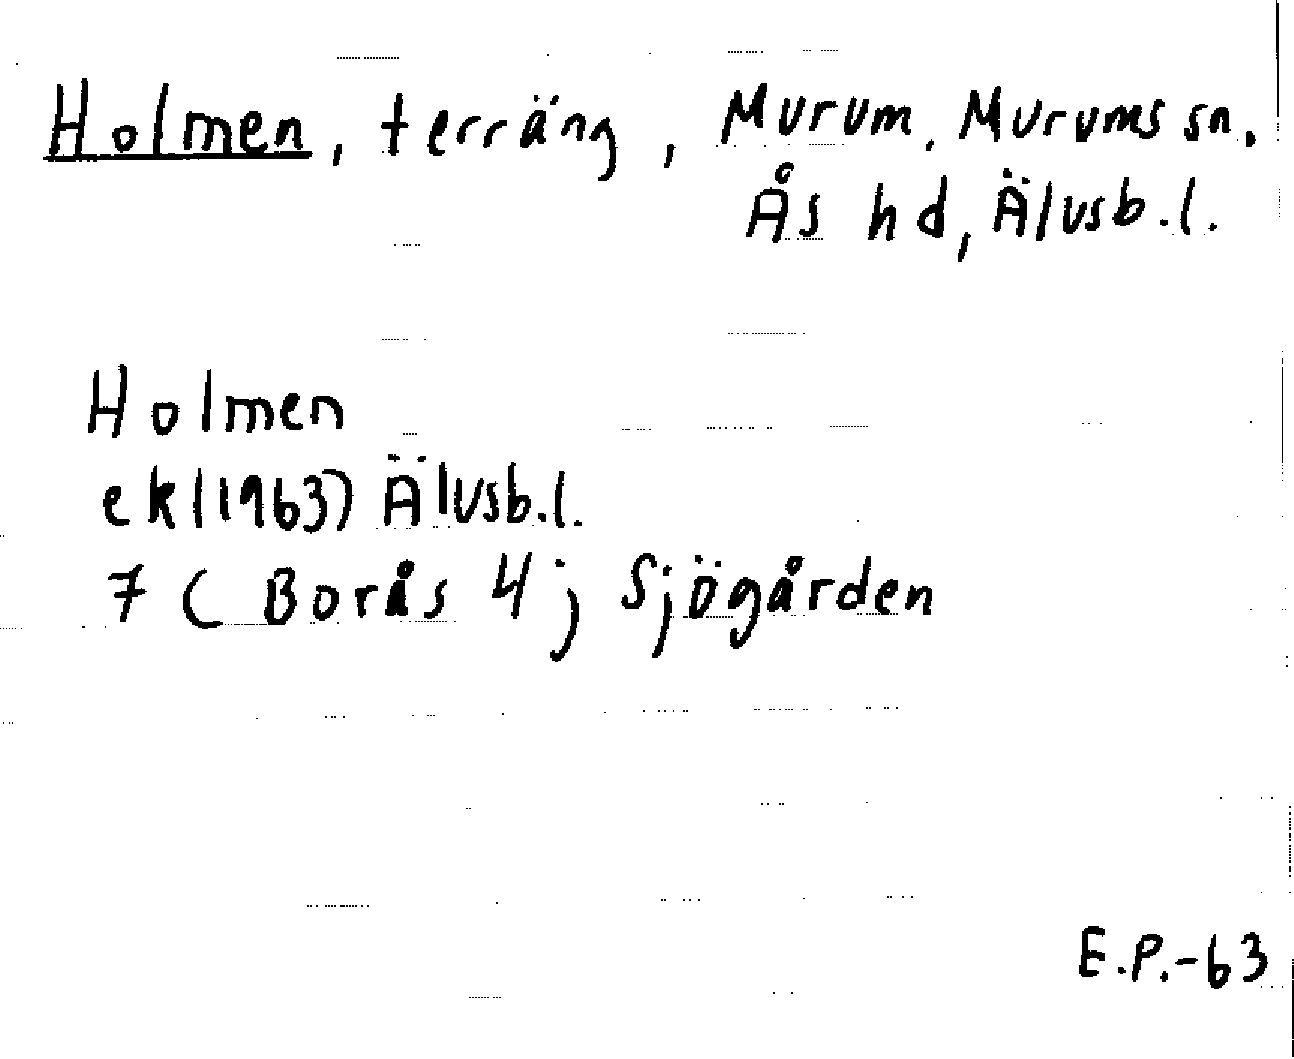 Holmen, terräng, Murum, Murums sn.
Ås hd, Älvsb.l.
Holmen
ek(1963) Älvsb.l.
7 ( Borås 4; Sjögården
E.P.-63